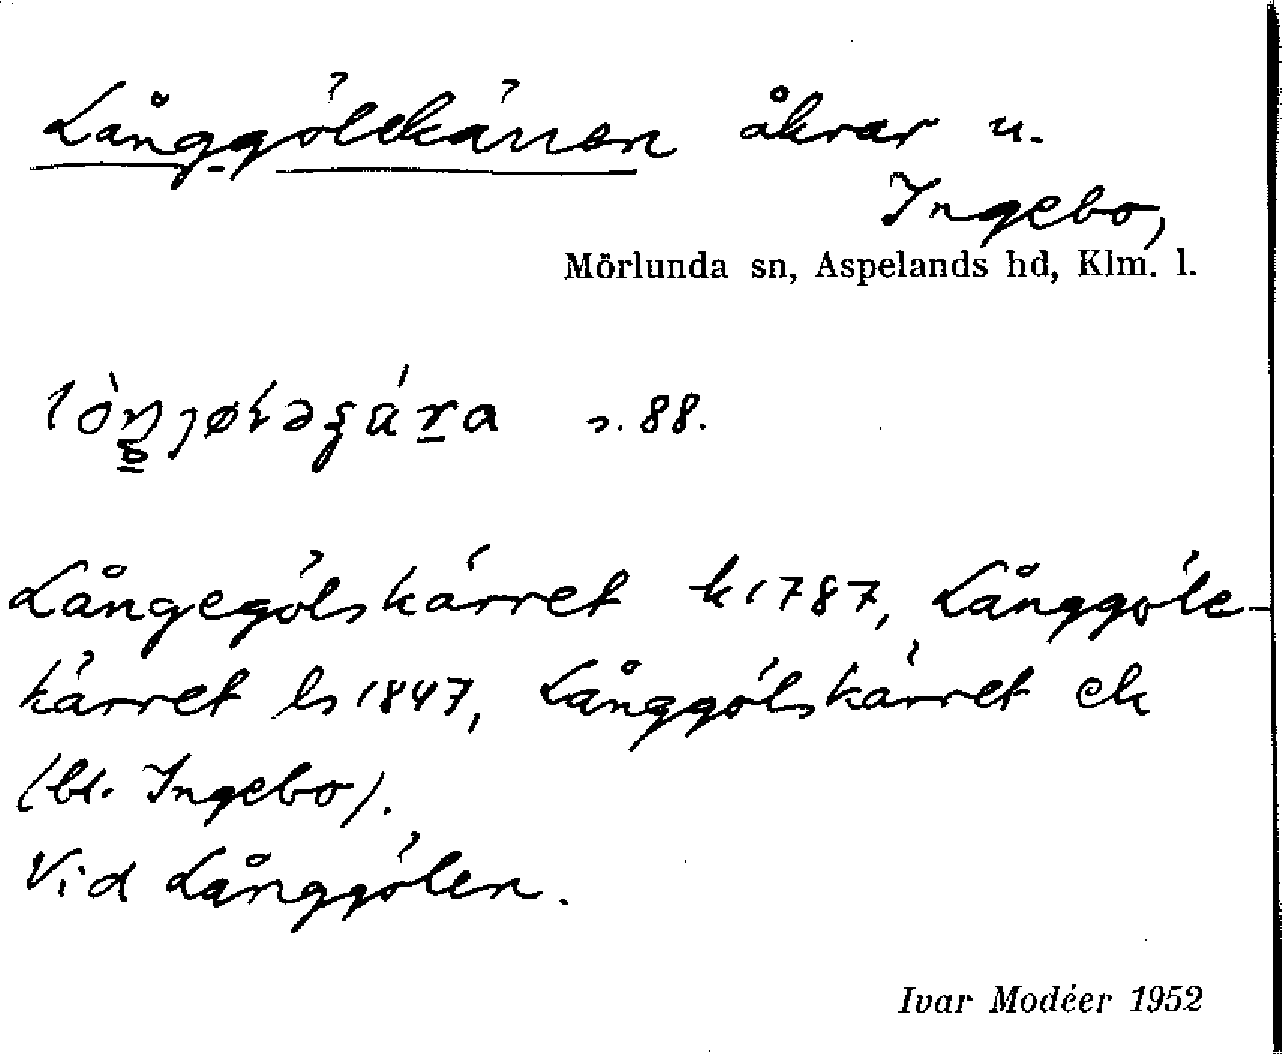 Långgölekärren åkrar u.
Ingebo,
Mörlunda sn, Aspelands hd, Klm. l.
s. 88.
Långegölskärret k 1787, Långgöle-
kärret ls 1847, Långgölskärret ek
(bl. Ingebo).
Vid Långgölen.
Ivar Modéer 1952